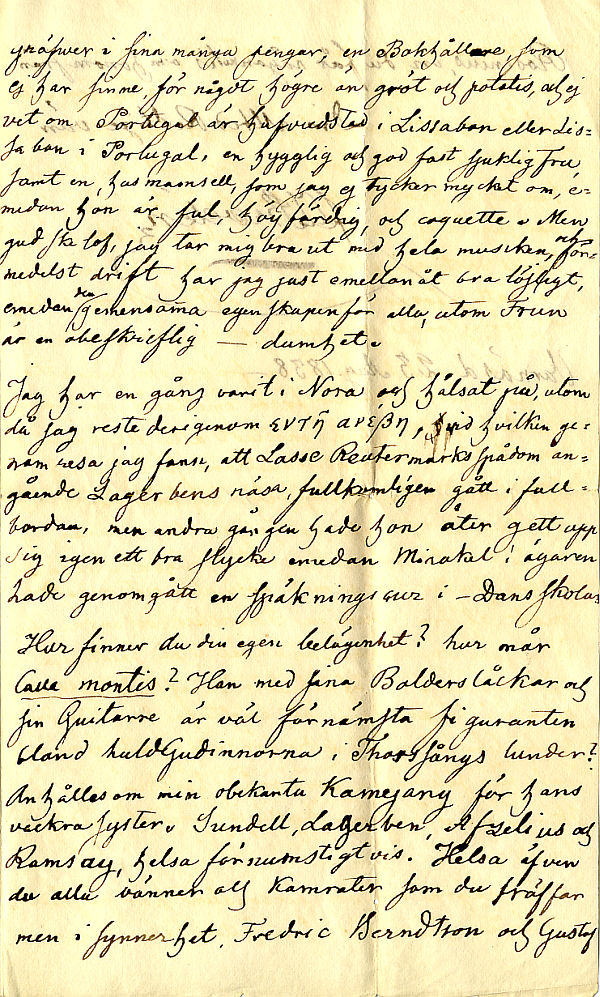 gräfwer i sina många pengar, en Bokhållare som
ej har sinne, för något högre än gröt och potatis, och ej
vet om Portugal är hufvudstad i Lissabon eller Lis=
sabon i Portugal, en hygglig och god fast sjuklig Fru,
samt en husmamsell, som jag ej tycker mycket om, e=
medan hon är ful, högfärdig, och coquette. Men
gud ske lof, jag tar mig bra ut med hela musiken, och för=
medelst drift har jag just emellanåt bra löjligt,
emedan den gemensamma egenskapen för alla, utom Frun
är en obeskrieflig — dumhet.
Jag har en gång varit i Nora och hälsat på, utom
då jag reste derigenom
vid hvilken ge=
nom resa jag fann, att Lasse Reutermarks spådom an=
gående Lagerbens näsa, fullkomligen gått i full=
bordan, men andra gången hade hon åter gett upp
sig igen ett bra stycke emedan Mirakel! ägaren
hade genomgått en späkningscur i — Dansskolan
Hur finner du din egen belägenhet? hur mår
Cava montis? Han med sina Balderslåckar och
sin Guitarre är väl förnämsta figuranten
bland huldGudinnorna i Thorssångs lunder?
Anhålles om min obekanta Kamegang för hans
vackra syster. Sundell, Lagerben, Afzelius och
Ramsay, helsa förnumstigtvis. Helsa äfven
de alla vänner och Kamrater som du träffar
men i synnerhet, Fredric Berndtson och Gustaf